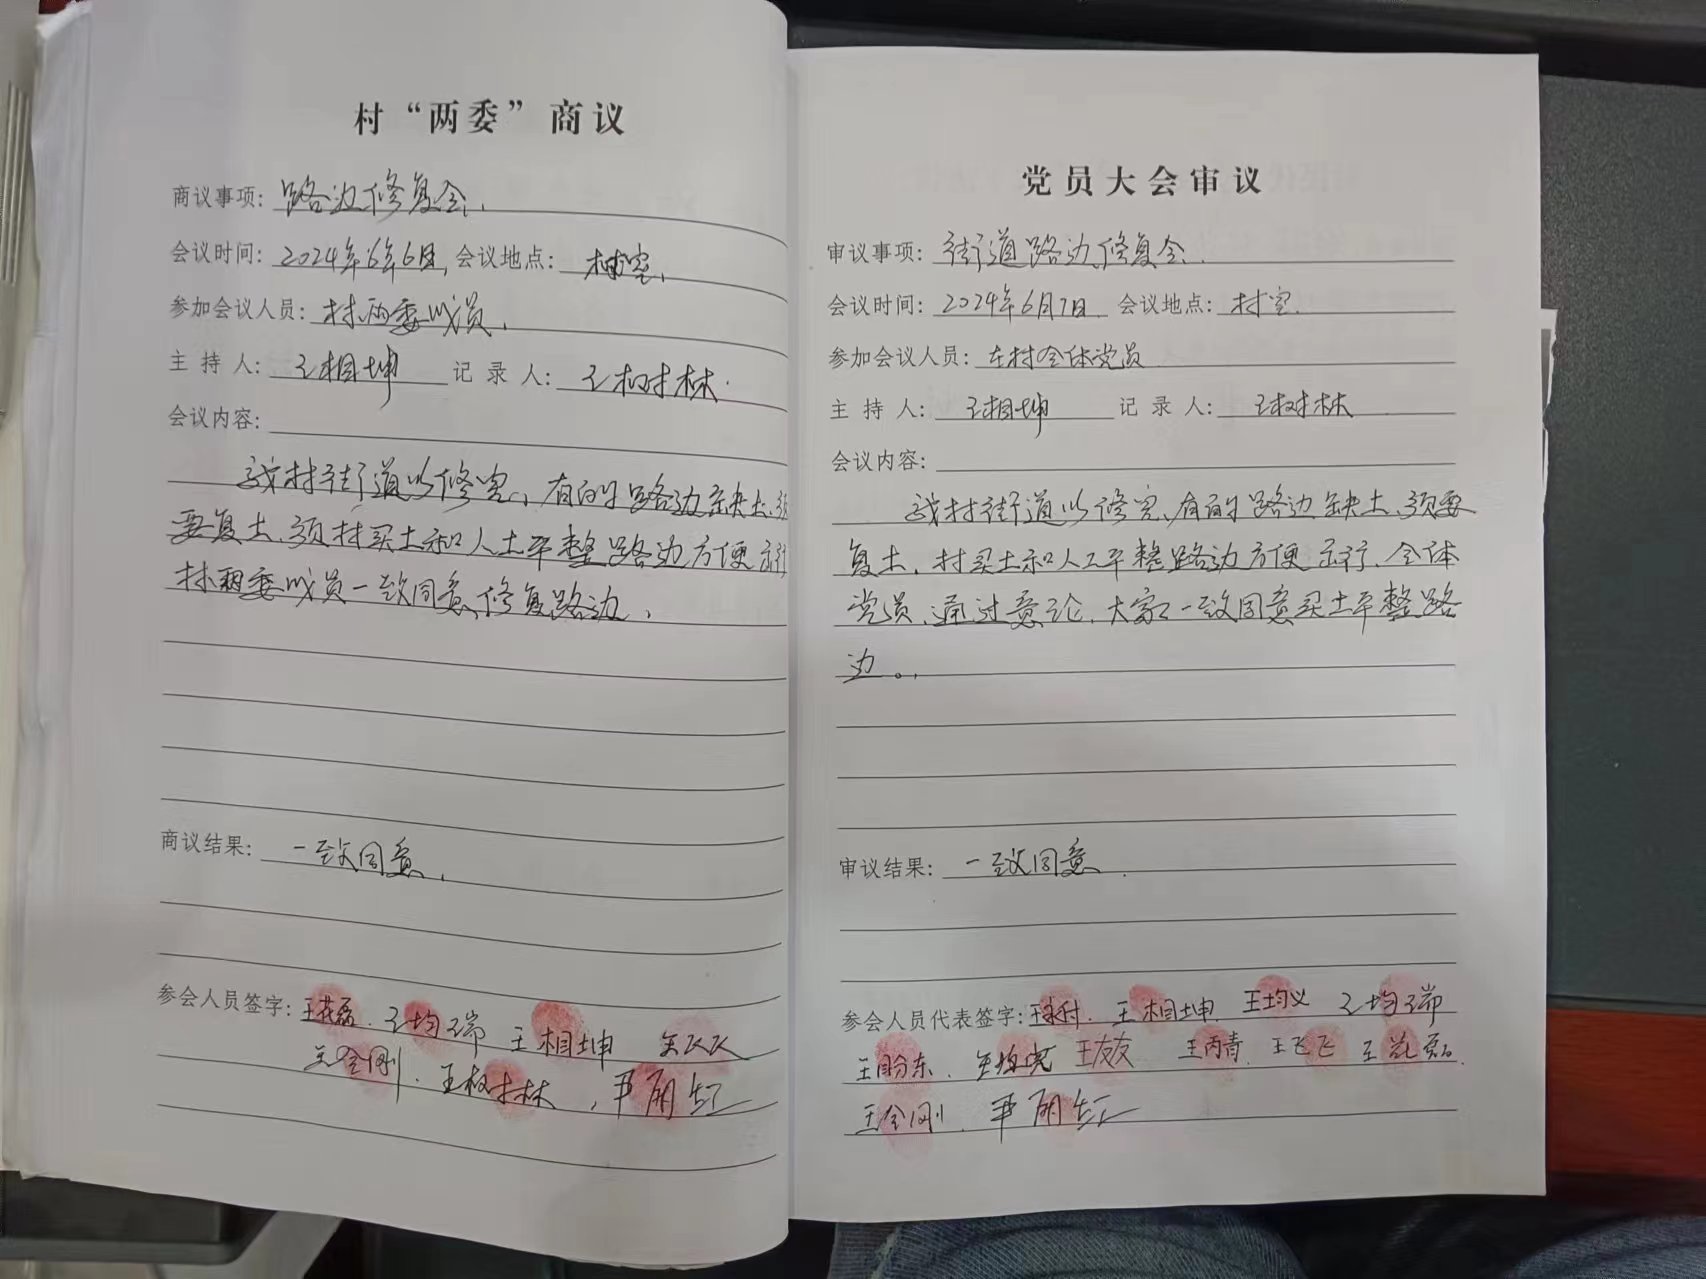 村“两委”商议
商议事项：路边修复会，
会议时间：2024年6年6日，会议地点：村室，
参加会议人员：村两委成员，
主持人：王相坤 记录人：王树林.
会议内容：
我村街道以修完，有的路边缺土，须
要复土，须村买土和人土平整路边方便出行
村两委成员一致同意修复路边，
商议结果：一致同意，
参会人员签字：王花磊. 王均瑞 王相坤
王金刚. 王树林，
党员大会审议
审议事项：街道路边修复会.
会议时间：2024年6月7日 会议地点：村室.
参加会议人员：在村全体党员
主持人：王相坤 记录人：王树林
会议内容：
我村街道以修完，有的路边缺土，须要
复土，村买土和人工平整路边方便出行，全体
党员，通过意论，大家一致同意买土平整路
边。，
审议结果：一致同意.
参会人员代表签字： 王相坤 王均义 王均瑞
王友友 王丙青 王飞飞 王花磊.
王金刚.